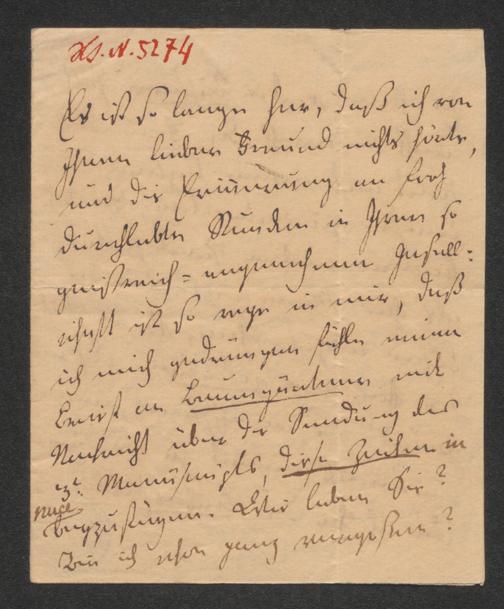 Hs. N. 5274
Es ist so lange her, daß ich von
Ihnen lieber Freund nichts hörte,
und die Erinnerung an froh
durchlebte Stunden in Ihrer so
geistreich-angenehmen Gesell=
schaft ist so rege in mir, daß
ich mich gedrungen fühle meinem
Brief an Baumgärtner mit
Nachricht über die Sendung des
3t. Manuscripts, diese Zeilen
beyzufügen. Wie leben Sie?
Bin ich schon ganz vergessen?